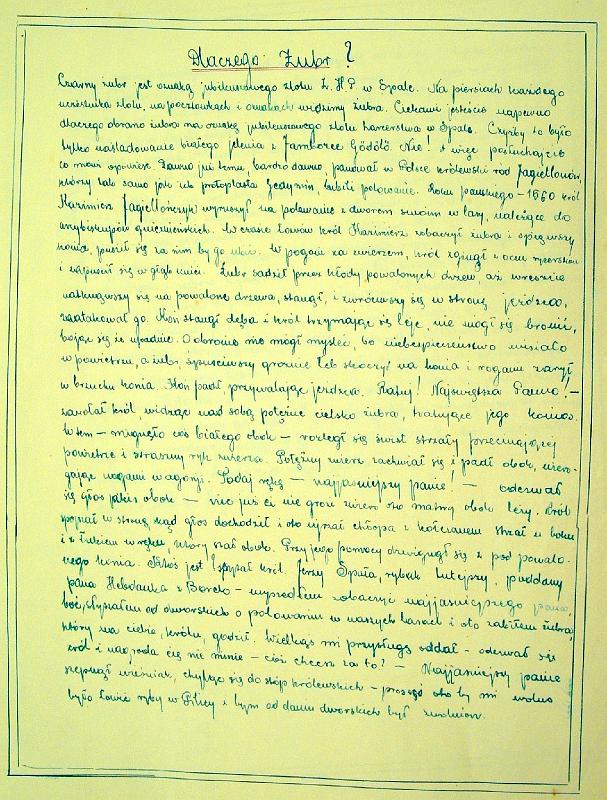 Dlaczego Żubr?
Czarny żubr jest oznaką jubileuszowego zlotu Z.H.P w Spale. Na piersiach każdego
uczestnika zlotu, na pocztówkach i oznakach widzimy żubra. Ciekawi jesteście napewno
dlaczego obrano żubra na oznakę jubileuszowego zlotu harcerstwa w Spale. Czyżby to było
tylko naśladowanie białego jelenia z Jamboree Gödölö. Nie! A więc posłuchajcie
co mówi opowieść. Dawno już temu, bardzo dawno, panował w Polsce królewski ród Jagiellonów,
którzy tak samo jak ich protoplasta Gedymin, lubili polowanie. Roku pańskiego - 1460 król
Kazimierz Jagiellończyk wyruszył na polowanie z dworem swoim w lasy, należące do
arcybiskupów gnieźnieńskich. W czasie łowów król Kazimierz zobaczył żubra i spiąwszy
konia, puścił się za nim by go ubić. W pogoni za zwierzem, król zginął z oczu rycerstwu
i zapuścił się w głąb kniei. Żubr sadził przez kłody powalonych drzew, aż wreszcie
natknąwszy się na powalone drzewa, stanął, i zwróciwszy się w stronę jeźdźca,
zaatakował go. Koń stanął dęba i król trzymając się lejc, nie mógł się bronić,
bojąc się że upadnie. O obronie nie mógł myśleć, bo niebezpieczeństwo wisiało
w powietrzu, a żubr, spuściwszy groźnie łeb skoczył na konia i rogami zarył
w brzuchu konia. Koń padł, przywalając jeźdźca. Ratuj! Najświętsza Panno! -
zawołał król, widząc nad sobą potężne cielsko żubra, tratujące jego konia.
W tem - mignęło coś białego obok - rozległ się świst strzały przecinającej
powietrze i straszny ryk zwierza. Potężny zwierz zachwiał się i padł obok, wierz-
gając nogami w agonji. Podaj rękę - najjaśniejszy panie! - odezwał
się głos jakiś obok - nic już ci nie grozi zwierz oto martwy obok leży. Król
spojrzał w stronę skąd głos dochodził i oto ujrzał chłopa z kołczanem strzał u boku
i z łukiem w ręku, który stał obok. Przy jego pomocy dźwignął się z pod powalo-
nego konia. Ktoś jest? spytał król. Jerzy Spała, rybak tutejszy, poddany
pana Hebdanka z - wyszedłem zobaczyć najjaśniejszego pana,
boć, słyszałem od dworskich o polowaniu w naszych lasach i oto zabiłem żubra,
który na ciebie, królu, godził. Wielkąś mi przysługę oddał - odezwał się
król i nagroda cię nie minie - cóż chcesz za to? - Najjaśniejszy panie
szepnął wieśniak, chyląc się do stóp królewskich - proszę oto by mi wolno
było łowić ryby w Pilicy i bym od danin dworskich był zwolniony.